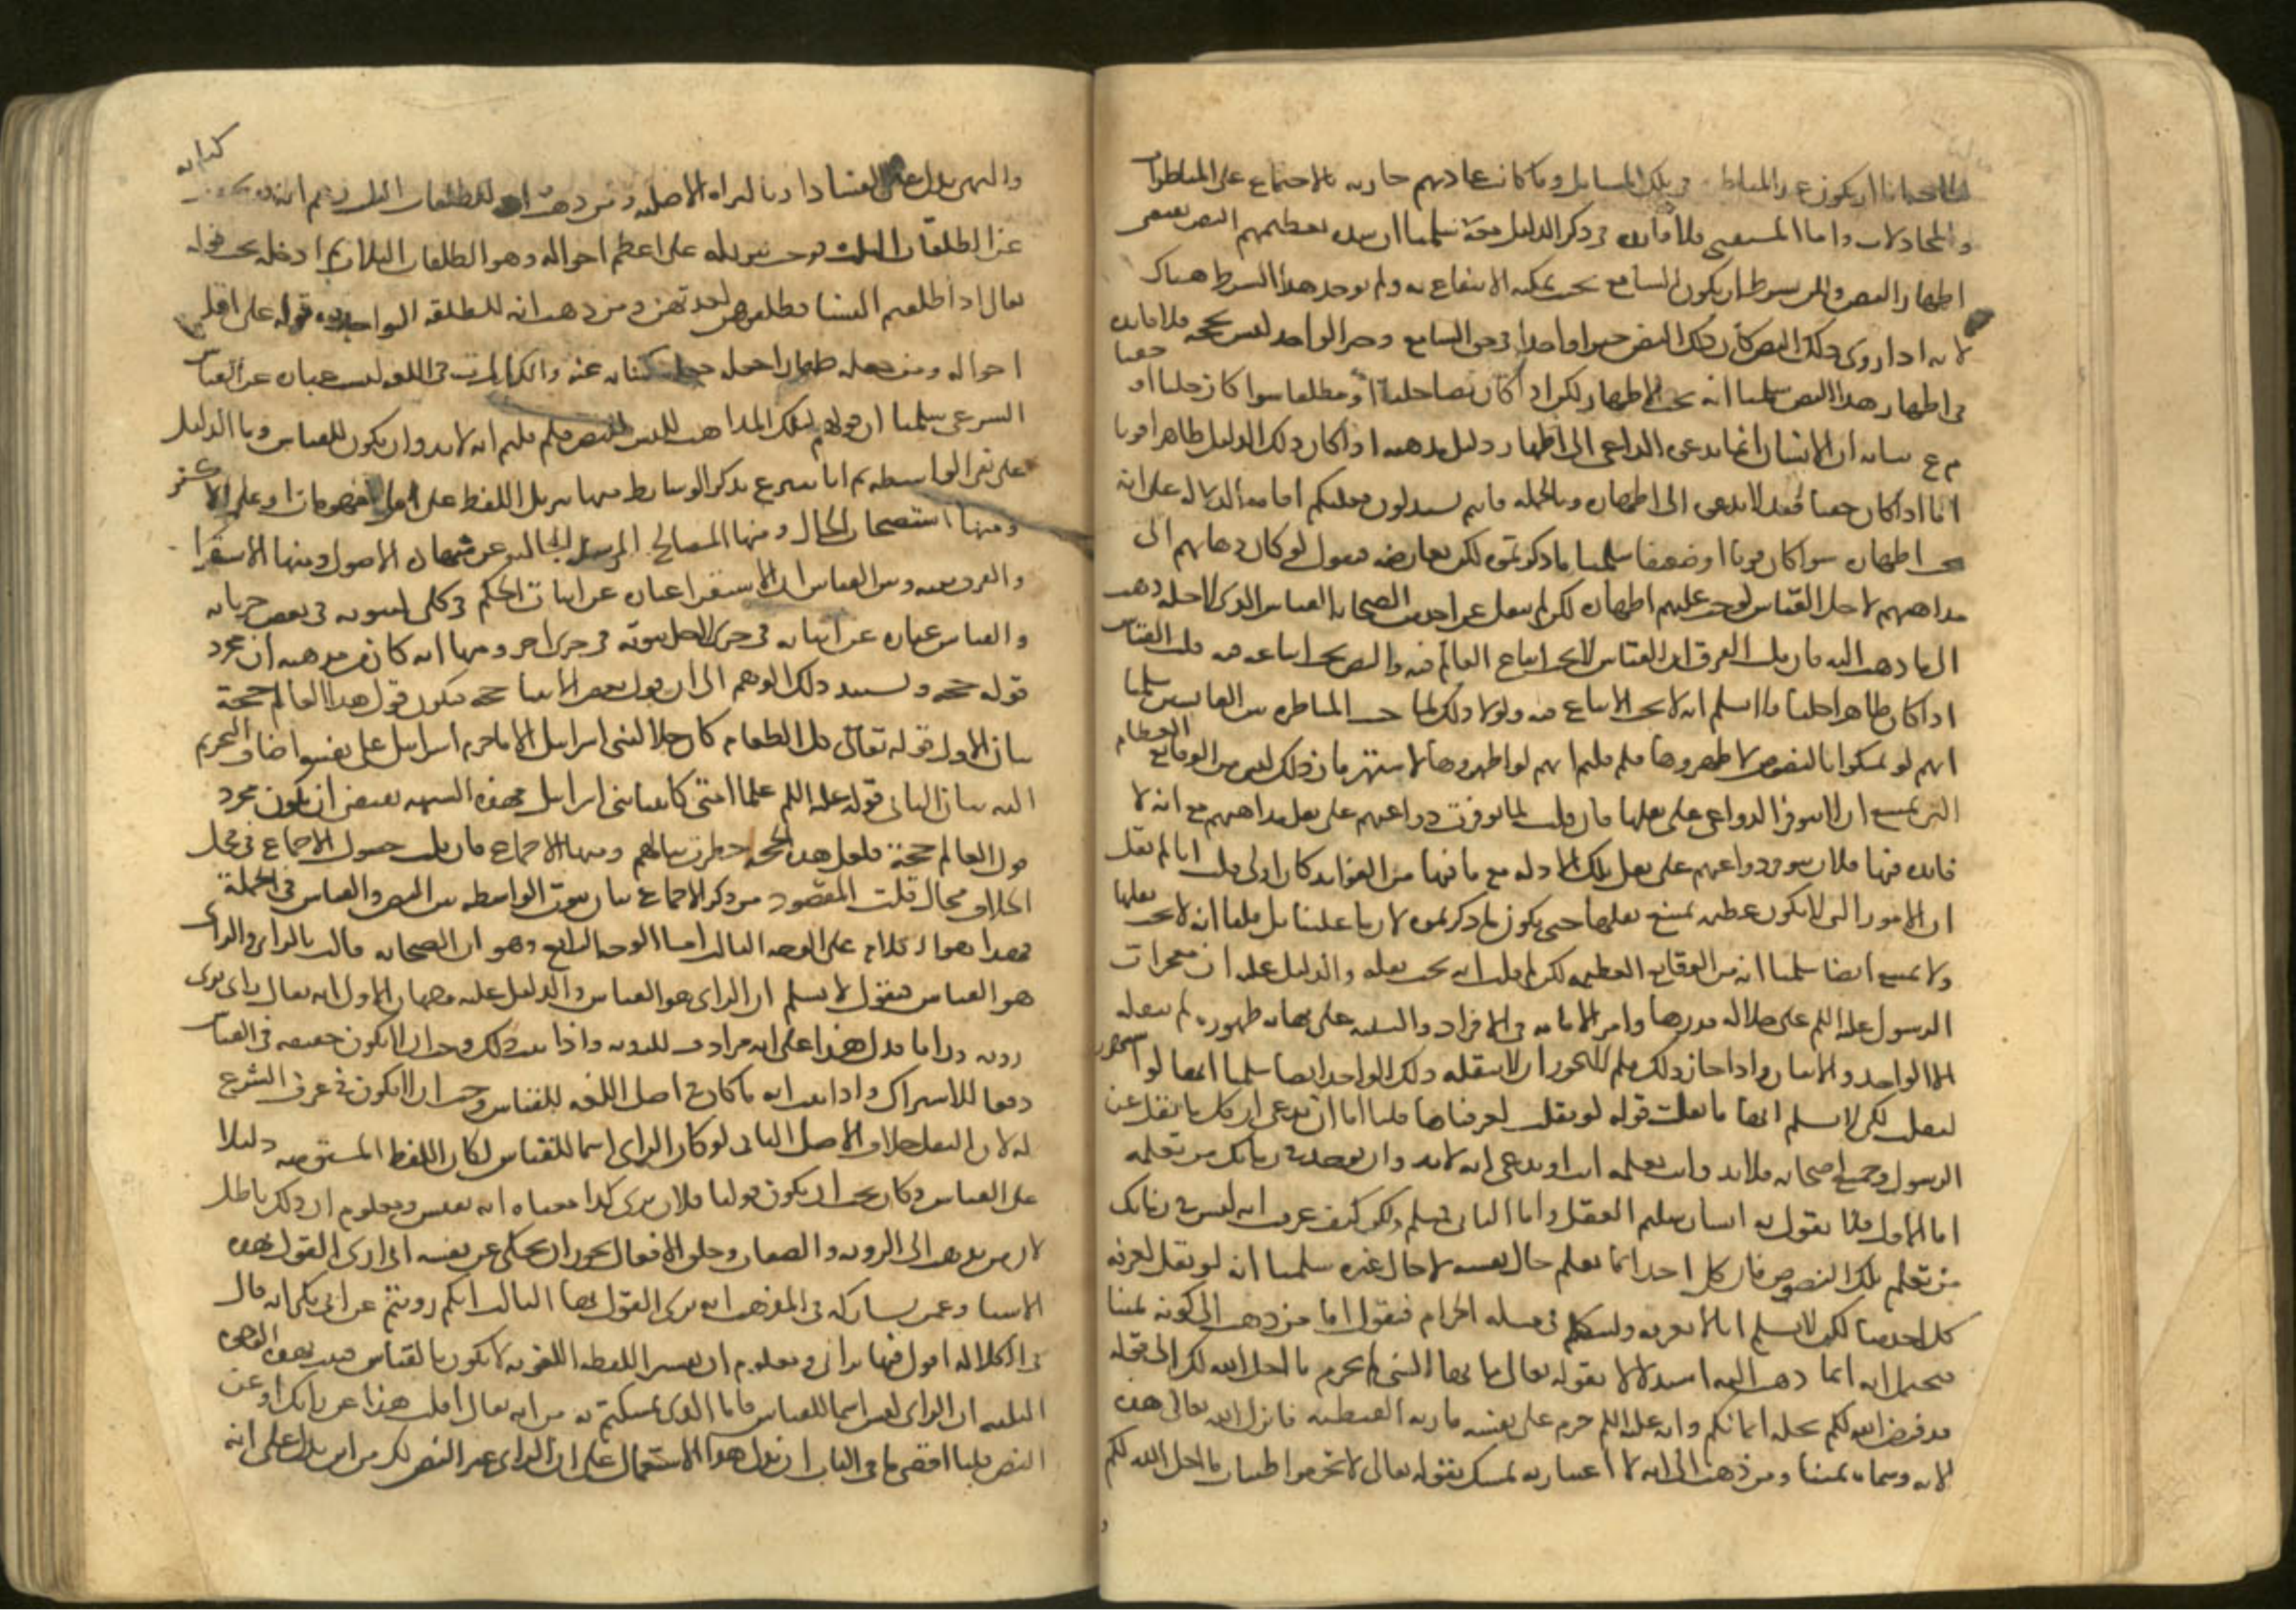 اما ان يكون عند المناظرة في تلك المسائل وما كانت عادتهم جارية بالاجتماع على المناظرات
والمجادلات واما المستفتي فلا فائدة في ذكر الدليل معه سلمنا ان شدة تعظيمهم النص يقتضي
اظهار النص ولكن بشرط ان يكون السامع بحيث يمكنه الانتفاع به ولم يوجد هذا الشرط هناك
لانه اذا روى ذلك النص كان ذلك النص خبرا واحدا في حق السامع وخبر الواحد ليس بحجة فلا فائدة
في اظهار هذا النص سلمنا انه يجب الاظهار لكن اذا كان نصا جليا او مطلقا سوا كان جليا او خفيا
م ع بيانه ان الانسان انما يدعى الداعي الى اظهار دليل مذهبه اذا كان ذلك الدليل ظاهرا قويا
اما اذا كان خفيا فقد لا يدعى الى اظهاره وبالجملة فانتم تستدلون فعليكم اقامة الدلالة على انه
يجب اظهاره سوا كان قويا او ضعيفا سلمنا ما ذكرتموه لكن يعارضه فنقول لو كان ذهابهم الى
مذاهبهم لاجل القياس لوجب عليهم اظهاره لكن لم ينقل عن احد من الصحابة القياس الذي لاجله ذهب
الى ما ذهب اليه فان قلت الفرق ان القياس لا يجب اتباع العالم فيه والنص يجب اتباعه فيه قلت القياس
اذا كان ظاهرا جليا فلا نسلم انه لا يجب الاتباع فيه ولولا ذلك لما حسنت المناظرة بين القايسين سلمنا
انهم لو تمسكوا بالنصوص لاظهروها فلم قلتم انهم لو اظهروها لاشتهر فان ذلك ليس من الوقايع العظام
التي يمتنع ان لا تتوفر الدواعي على نقلها فان قلت لما توفرت دواعيهم على نقل مذاهبهم مع انه لا
فائدة فيها فلان تتوفر دواعيهم على نقل تلك الادلة مع ما فيها من الفوائد كان اولى قلت انا لم نقل
ان الامور التي لا تكون عظيمة يمتنع نقلها حتى يكون ما ذكرتموه لازما علينا بل قلنا انه لا يجب نقلها
ولا يمتنع ايضا سلمنا انه من الوقايع العظيمة لكن لم قلت انه يجب نقله والدليل عليه ان معجزات
الرسول عليه السلم على جلالة قدرها وامر الاقامة في الافراد والتثنية على نهاية ظهوره لم ينقله
الا الواحد والاثنان واذا جاز ذلك فلم لا يجوز ان لا ينقله ذلك الواحد ايضا سلمنا انها لو اشتهرت
لنقلت لكن لا نسلم انها ما نقلت قوله لو نقلت لعرفناها قلنا اما ان تدعي ان كل ما نقل عن
الرسول وجميع اصحابه فلا بد وان تعلمه انت او تدعي انه لا بد وان يوجد في زمانك من يعلمه
اما الاول فلا يقول به انسان سليم العقل واما الثاني فمسلم ولكن كيف عرفت انه ليس في زمانك
من يعلم تلك النصوص فان كل احد انما يعلم حال نفسه لا حال غيره سلمنا انه لو نقل لعرفه
كل احد منا لكن لا نسلم انا لا نعرفه ولنتكلم في مسئلة الحرام فنقول اما من ذهب الى كونه يمينا
فيحتمل انه انما ذهب اليه استدلالا بقوله تعالى يا ايها النبي لم تحرم ما احل الله لك الى قوله
قد فرض الله لكم تحلة ايمانكم وانه عليه السلم حرم على نفسه مارية القبطية فانزل الله تعالى هذه
الاية وسماه يمينا ومن ذهب الى انه لا اعتبار به تمسك بقوله تعالى لا تحرموا طيبات ما احل الله لكم
والنهي يدل على الفساد او بالبراة الاصلية ومن ذهب انه للطلقات الثلث زعم انه كناية
عن الطلقات الثلث فوجب تنزيله على اعظم احواله وهو الطلقات الثلاث ثم ادخله تحت قوله
تعالى اذا طلقتم النسا فطلقوهن لعدتهن ومن ذهب انه للطلقة الواحدة نزله على اقل
احواله ومن جعله ظهارا جعله كناية عنه والكنايات في اللغة ليست عبارة عن القياس
الشرعي سلمنا ان قولهم بتلك المذاهب ليس للنص فلم قلتم انه لا بد وان يكون للقياس وما الدليل
على نفي الواسطة ثم انا نشرع بذكر الوسايط منها تنزيل اللفظ على اقل المفهومات او على الاكثر
ومنها استصحاب الحال ومنها المصالح المرسلة الخالية عن شهادة الاصول ومنها الاستقرا
والفرق بينه وبين القياس ان الاستقرا عبارة عن اثبات الحكم في كلي لثبوته في بعض جزياته
والقياس عبارة عن اثباته في جزي لاجل ثبوته في جزي اخر ومنها انه كان من مذهبه ان مجرد
قوله حجة ويستند ذلك الوهم الى ان قول بعض الانبيا حجة فيكون قول هذا العالم حجة
بيان الاول قوله تعالى كل الطعام كان حلا لبني اسرايل الا ما حرم اسرايل على نفسه اضاف التحريم
اليه بيان الثاني قوله عليه السلم علما امتي كانبيا بني اسرايل فهذه الشبهة تقتضي ان يكون مجرد
قول العالم حجة فلعل هذه الحجة خطرت ببالهم ومنها الاجماع فان قلت حصول الاجماع في محل
الخلاف محال قلت المقصود من ذكر الاجماع بيان ثبوت الواسطة بين النص والقياس في الجملة
فهذا هو الكلام على الوجه الثالث اما الوجه الرابع وهو ان الصحابة قالت بالراي والراي
هو القياس فنقول لا نسلم ان الراي هو القياس والدليل عليه وجهان الاول انه يقال راى يرى
روية ورايا فدل هذا على انه مرادف للروية واذا ثبت ذلك وجب ان لا يكون حقيقة في القياس
دفعا للاشتراك واذا ثبت انه ما كان في اصل اللغة للقياس وجب ان لا يكون في عرف الشرع
له لان النقل خلاف الاصل الثاني لو كان الراي اسما للقياس لكان اللفظ المشتق منه دليلا
على القياس وكان يجب ان يكون قولنا فلان يرى كذا معناه انه يقيس ومعلوم ان ذلك باطل
لان من يذهب الى الروية والصفات وخلق الافعال يجوز ان يحكي عن نفسه اني ارى القول بهذه
الاشيا وعمن يشاركه في المذهب انه يرى القول بها الثالث انكم رويتم عن ابي بكر انه قال
في الكلالة اقول فيها براي ومعلوم ان تفسير اللفظة اللغوية لا يكون بالقياس فثبت بهذه الوجوه
الثلثة ان الراي ليس اسما للقياس فاما الذي تمسكتم به من انه يقال اقلت هذا عن رايك او عن
النص قلنا اقصى ما في الباب ان يدل هذا الاستعمال على ان الراي غير النص لكن من اين يدل على انه